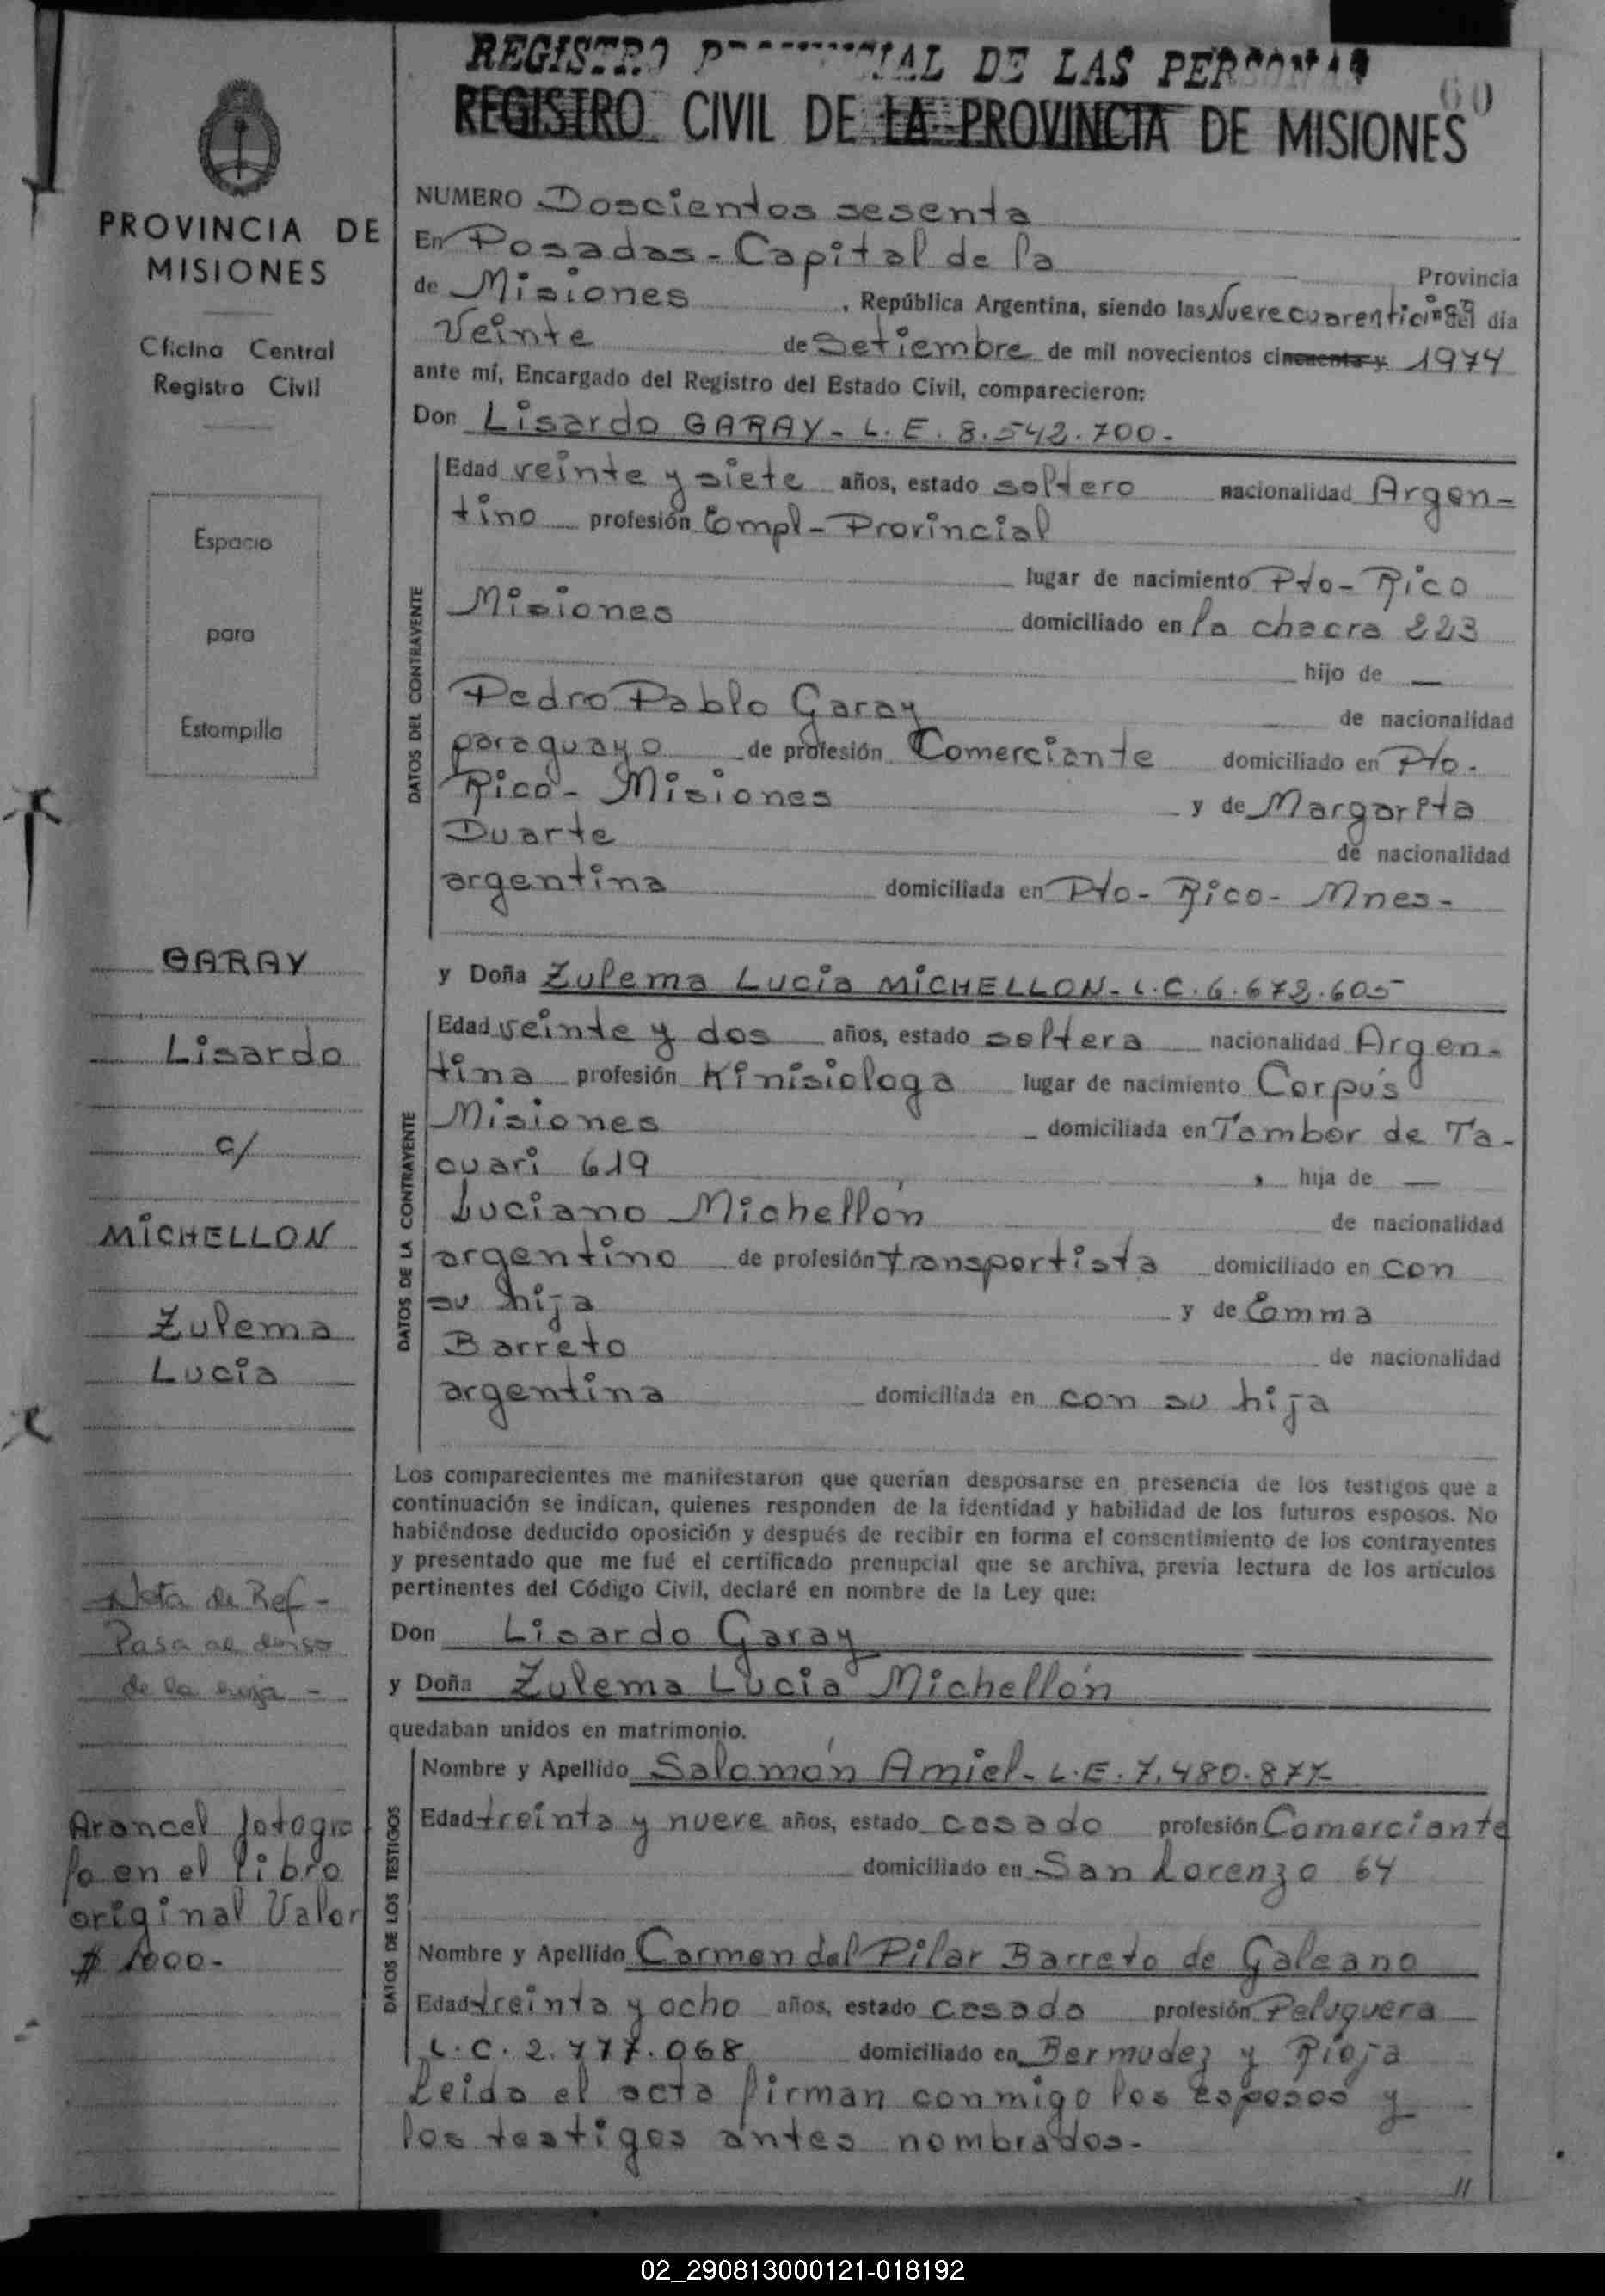 REGISTRO PROVINCIAL DE LAS PERSONAS
60
REGISTRO CIVIL DE LA PROVINCIA DE MISIONES
PROVINCIA DE
MISIONES
Oficina Central
Registro Civil
Espacio
para
Estampilla
GARAY
Lisardo
c/
MICHELLON
Zulema
Lucia
Nota de Ref -
Pasa al dorso
de la hoja -
Arancel fotogra
fo en el libro
original Valor
$ 1000-
NUMERO Doscientos sesenta
En Posadas - Capital de la Provincia
de Misiones, República Argentina, siendo las Nueve del día
Veinte de Setiembre de mil novecientos cincuenta y 1974
ante mí, Encargado del Registro del Estado Civil, comparecieron:
Don Lisardo GARAY - L. E. 8.542.700-
DATOS DEL CONTRAYENTE
Edad veinte y siete años, estado soltero nacionalidad Argen-
tino profesión Empl - Provincial
lugar de nacimiento Pto - Rico
Misiones domiciliado en la chacra 223
hijo de —
Pedro Pablo Garay de nacionalidad
paraguayo de profesión Comerciante domiciliado en Pto.
Rico - Misiones y de Margarita
Duarte de nacionalidad
argentina domiciliada en Pto - Rico - Mnes -
y Doña Zulema Lucia MICHELLON - L.C. 6.672.605
DATOS DE LA CONTRAYENTE
Edad veinte y dos años, estado soltera nacionalidad Argen-
tina profesión Kinisiologa lugar de nacimiento Corpus
Misiones domiciliada en Tambor de Ta-
cuari 619, hija de —
Luciano Michellón de nacionalidad
argentino de profesión transportista domiciliado en con
su hija y de Emma
Barreto de nacionalidad
argentina domiciliada en con su hija
Los comparecientes me manifestaron que querían desposarse en presencia de los testigos que a
continuación se indican, quienes responden de la identidad y habilidad de los futuros esposos. No
habiéndose deducido oposición y después de recibir en forma el consentimiento de los contrayentes
y presentado que me fué el certificado prenupcial que se archiva, previa lectura de los artículos
pertinentes del Código Civil, declaré en nombre de la Ley que:
Don Lisardo Garay
y Doña Zulema Lucia Michellón
quedaban unidos en matrimonio.
DATOS DE LOS TESTIGOS
Nombre y Apellido Salomón Amiel - L.E. 7.480.877-
Edad treinta y nueve años, estado casado profesión Comerciante
domiciliado en San Lorenzo 64
Nombre y Apellido Carmen del Pilar Barreto de Galeano
Edad treinta y ocho años, estado casada profesión Peluquera
L.C. 2.777.068 domiciliado en Bermudez y Rioja
Leida el acta firman conmigo los esposos y
los testigos antes nombrados-
//
02_290813000121-018192